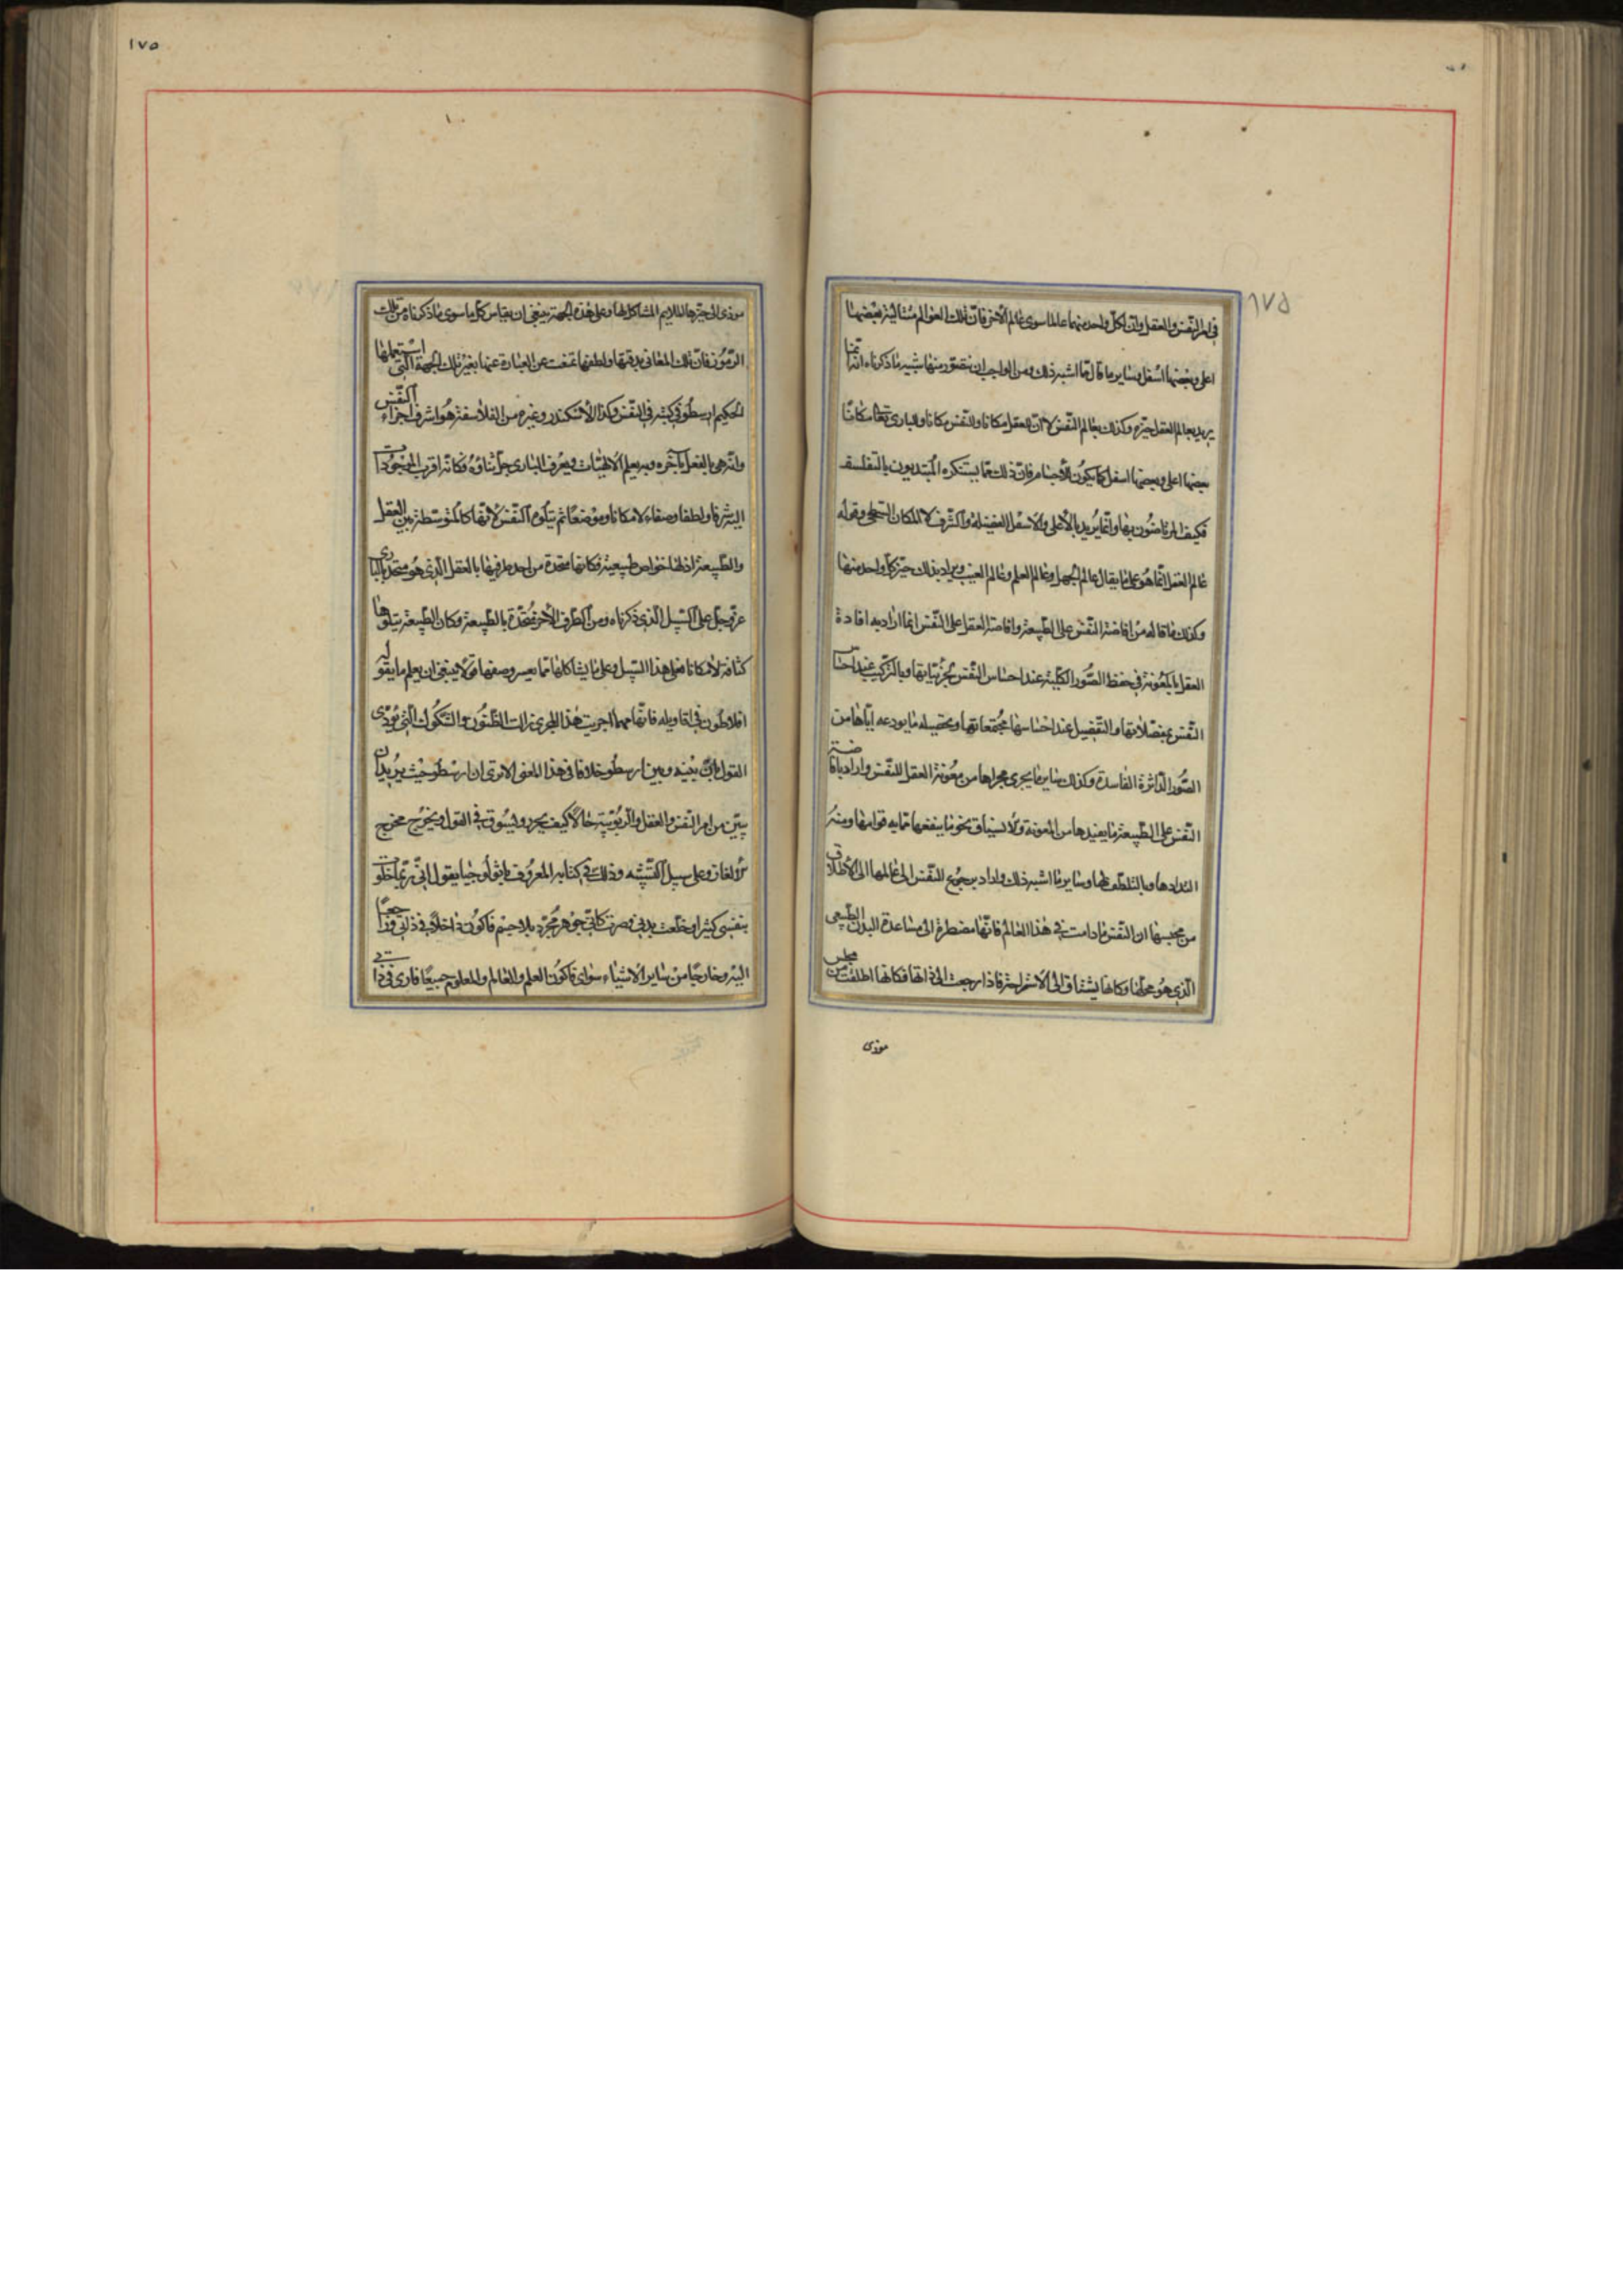 ١٧٥
في امر النفس والعقل وان لكل واحد منهما عالما سوى عالم الآخر فان تلك العوالم متتالية بعضها
اعلى وبعضها اسفل وساير ما قال مما اشبه ذلك ومن الواجب ان نتصور منها شبيه ما ذكرناه انه انما
يريد بعالم العقل حيزه وكذلك بعالم النفس لا ان للعقل مكانا وللنفس مكانا وللبارى تعالى مكانا
بعضها اعلى وبعضها اسفل كما يكون للأجسام فان ذلك مما يستنكره المبتديون بالتفلسف
فكيف المرتاضون بها وانما يريد بالأعلى والأسفل الفضيلة والشرف لا المكان السطحى وقوله
عالم العقل انما هو على ما يقال عالم الجهل وعالم العلم وعالم الغيب ويراد بذلك حيز كل واحد منها
وكذلك ما قاله من افاضة النفس على الطبيعة وافاضة العقل على النفس انما اراد به افادة
العقل بالمعونة في حفظ الصور الكلية عند احساس النفس بجزئياتها وبالتركيب عند احساس
النفس بمفصلاتها والتفصيل عند احساسها مجتمعاتها وتحصيله ما يودعه اياها من
الصور الداثرة الفاسدة وكذلك ساير ما يجرى مجراها من معونة العقل للنفس واراد بافاضة
النفس على الطبيعة ما يفيدها من المعونة والانسياق نحو ما ينفعها مما به قوامها ومنه
التذاذها وبالتلطف لها وساير ما اشبه ذلك واراد برجوع النفس الى عالمها الى الاطلاق
من محبسها ان النفس ما دامت في هذا العالم فانها مضطرة الى مساعدة البدن الطبيعى
الذي هو محلها وكانها يشتاق الى الاستراحة فاذا رجعت الى ذاتها فكانها اطلقت من محبس
موذى
١٧٥
موذى الى حيزها الملايم المشاكل لها وعلى هذه الجهة ينبغى ان يقاس كل ما سوى ما ذكرناه من تلك
الرموز فان تلك المعانى بدقتها ولطفها تمنعت عن العبارة عنها بغير تلك الجهة التى استعملها
الحكيم ارسطو في كتبه في النفس وكذا الاسكندر وغيره من الفلاسفة هو اشرف اجزاء النفس
وانه هى بالفعل بآخره وبه يعلم الالهيات ويعرف البارى جل ثناؤه فكانه اقرب الموجودات
اليه شرفا ولطفا وصفاء لا مكانا وموضعا ثم يتلوه النفس لانها كالمتوسطة بين العقل
والطبيعة اذ لها حواص طبيعية فكانها متحدة من احد طرفيها بالعقل الذى هو متحد بالبارى
عز وجل على السبيل الذى ذكرناه ومن الطرف الآخر متحدة بالطبيعة وكان الطبيعة يتلوها
كثافة لا مكانا فعلى هذا السبيل وعلى ما يشاكلها مما يعسر وصفها قولا ينبغى ان يعلم ما يقوله
افلاطون في اقاويله فانها مهما اجريت هذا المجرى زالت الظنون والشكوك التى يؤدى
القول بان بينه وبين ارسطو خلافا في هذا المعنى الا ترى ان ارسطو حيث يريد ان
يبين من امر النفس والعقل والربوبية حالا كيف يجرد ويسوق في القول ويخرج مخرج
الألغاز وعلى سبيل التشبيه وذلك في كتابه المعروف باثولوجيا يقول انى ربما خلوت
بنفسى كثيرا وخلعت بدنى فصرت كانى جوهر مجرد بلا جسم فاكون داخلا في ذاتى وراجعا
اليه وخارجا من ساير الاشياء سواى فاكون العلم والعالم والمعلوم جميعا فارى في ذاتى